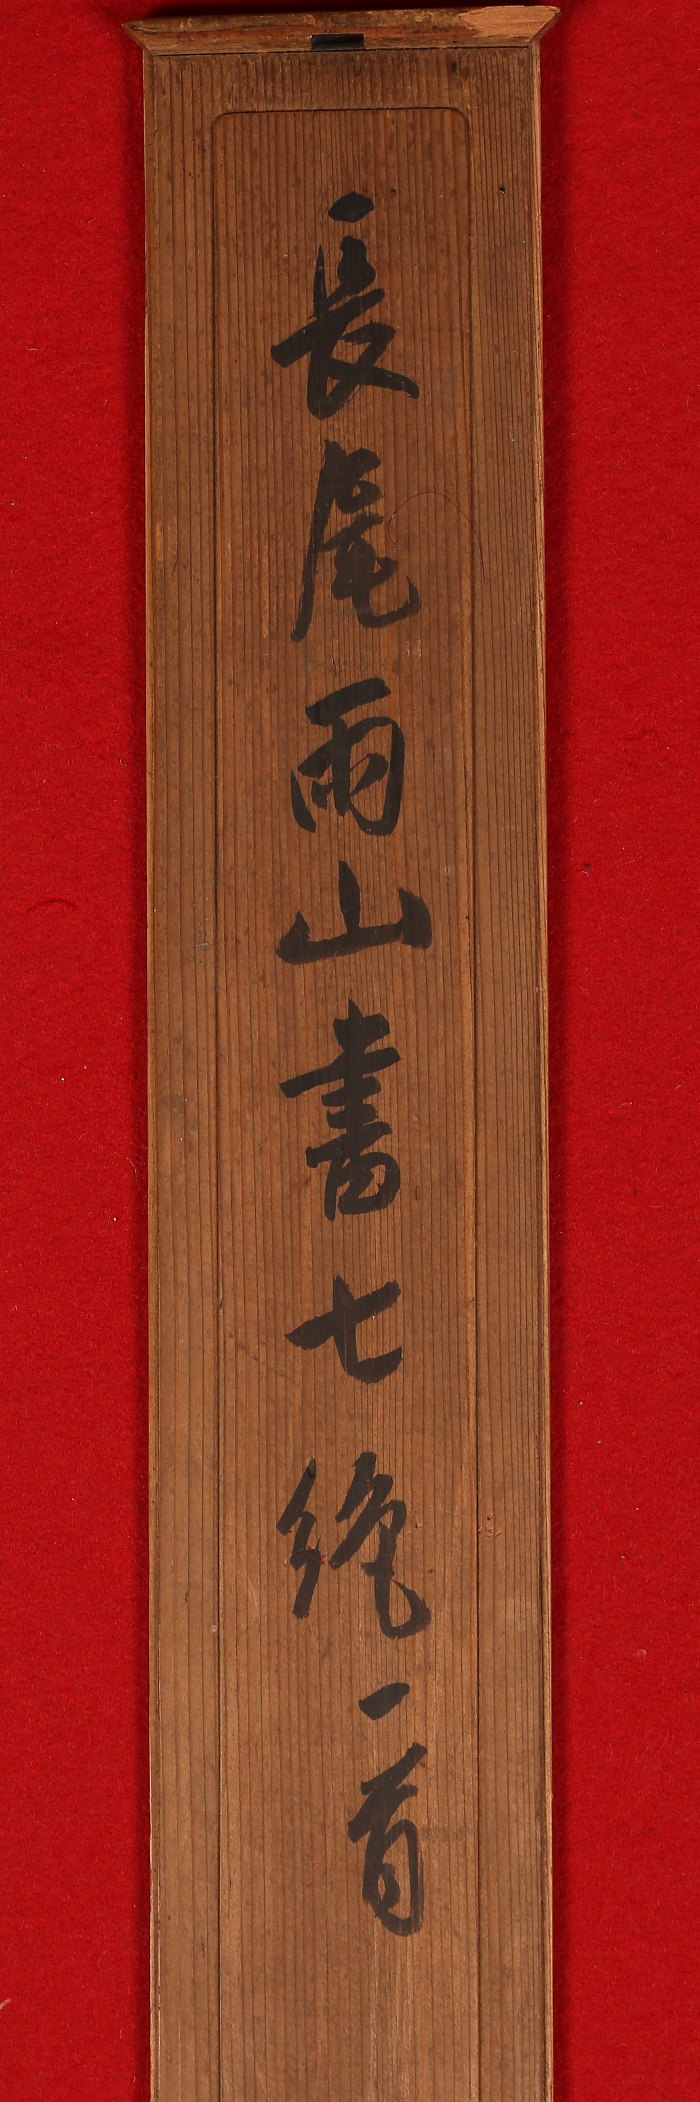 長尾雨山書七絶一首